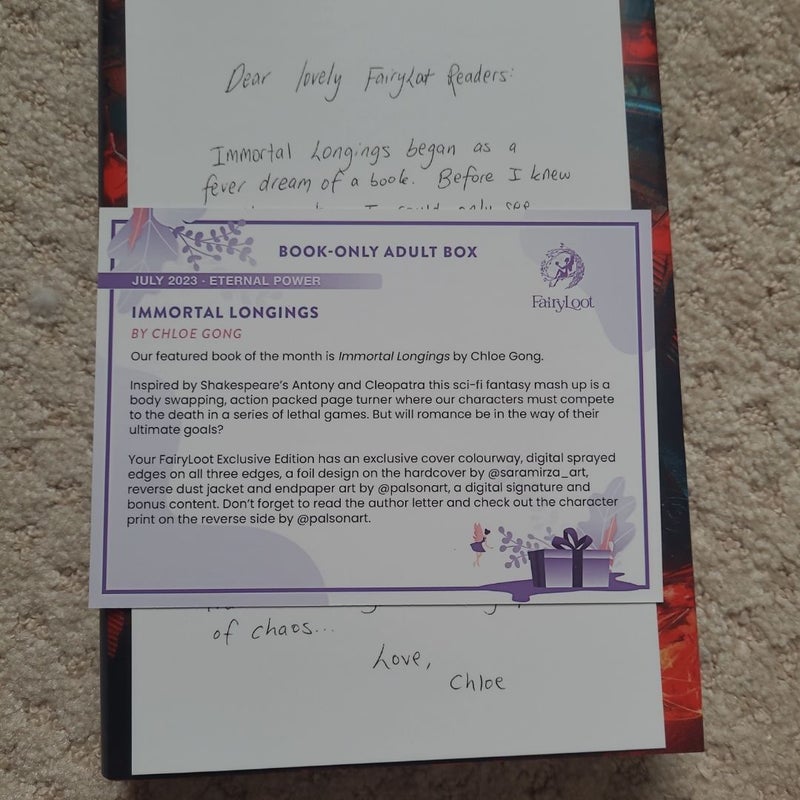 Dear lovely FairyLoot Readers:
Immortal Longings began as a
fever dream of a book. Before I knew
I could only see
BOOK-ONLY ADULT BOX
JULY 2023 - ETERNAL POWER
FairyLoot
IMMORTAL LONGINGS
BY CHLOE GONG
Our featured book of the month is Immortal Longings by Chloe Gong.
Inspired by Shakespeare's Antony and Cleopatra this sci-fi fantasy mash up is a
body swapping, action packed page turner where our characters must compete
to the death in a series of lethal games. But will romance be in the way of their
ultimate goals?
Your FairyLoot Exclusive Edition has an exclusive cover colourway, digital sprayed
edges on all three edges, a foil design on the hardcover by @saramirza_art,
reverse dust jacket and endpaper art by @palsonart, a digital signature and
bonus content. Don't forget to read the author letter and check out the character
print on the reverse side by @palsonart.
of chaos...
Love,
Chloe